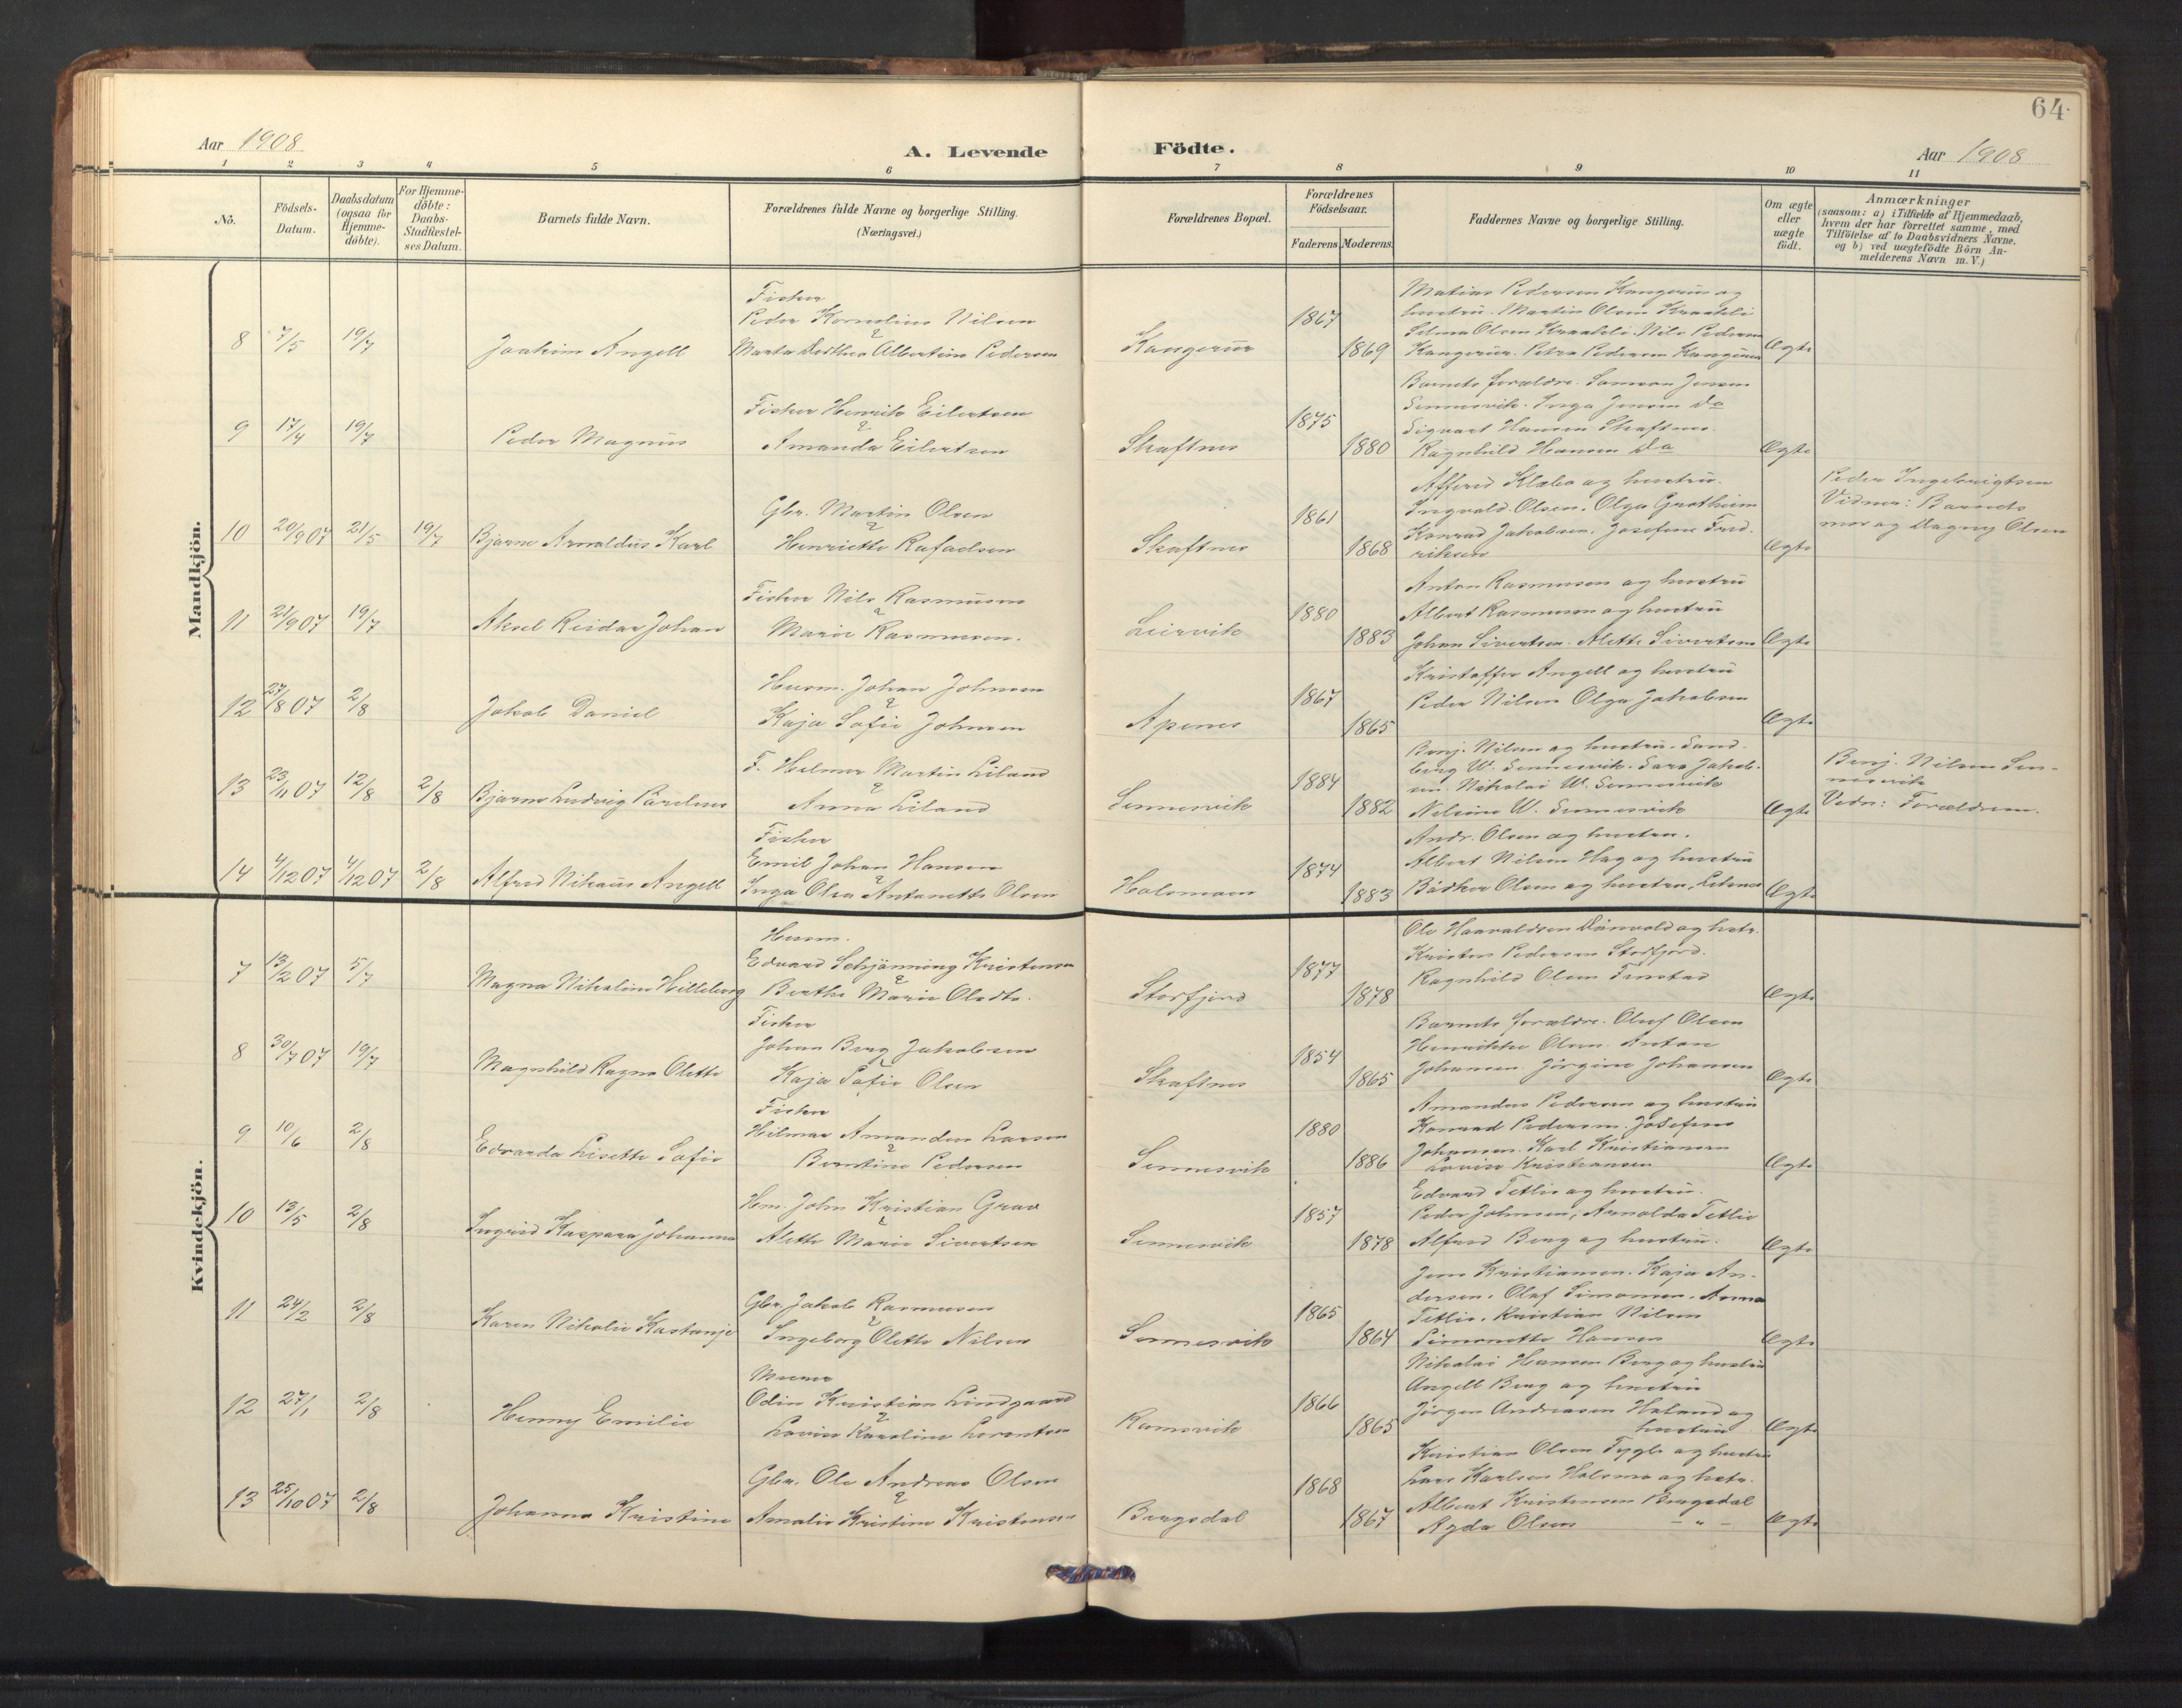 64.
Aar 1908
A. Levende
Födte.
Aar 1908
1 2 3 4 5 6 7 8 9 10 11
Nö.
Födsels-
Datum.
Daabsdatum
(ogsaa for
Hjemme-
döbte).
For Hjemme-
döbte:
Daabs-
Stadfæstel-
ses Datum.
Barnets fulde Navn.
Forældrenes fulde Navne og borgerlige Stilling.
(Næringsvei.)
Forældrenes Bopæl.
Forældrenes
Födselsaar.
Faderens Moderens
Faddernes Navne og borgerlige Stilling.
Om ægte
eller
uægte
födt.
Anmærkninger
(saasom: a) i Tilfælde af Hjemmedaab,
hvem der har forrettet samme, med
Tilföielse af to Daabsvidners Navne,
og b) ved uægtefödte Börn An-
melderens Navn m. V.)
Mandkjön.
8 7/5 19/7
Joakim Angell
Fisker
Peder Kornelius Nilsen
&
Marta Dorthea Albertine Pedersen
1867
1869
Matias Pedersen
hustru. Martin Olsen
Selma Olsen Nils Pedersen
Petra Pedersen
Ægte
9 17/4 19/7
Peder Magnus
Fisker Henrik Eilertsen
&
Amanda Eilertsen
Skaftnes
1875
1880
Barnets forældre.
Sennesvik. Inga Jensen do
Sigvart Hansen Skaftnes.
Ragnhild Hansen do
Ægte
10 20/9 07 21/5 19/7
Bjarne Arnoldus Karl
Gbr. Martin Olsen
&
Henriette Rafaelsen
Skaftnes
1861
1868
Klæbo og hustru.
Ingvald Olsen. Olga Grotheim
Konrad Jakobsen. Josefine Fred-
riksen
Ægte
Peder Ingebrigtsen
Vidner: Barnets
mor og Dagny Olsen
11 21/9 07 19/7
Aksel Reidar Johan
Fisker Nils Rasmusen
&
Marie Rasmusen.
Leirvik
1880
1883
Anton Rasmusen og hustru
Albert Rasmusen og hustru
Johan Sivertsen. Alette Sivertsen
Ægte
12 27/8 07 2/8
Jakob Daniel
Husm. Johan Johnsen
&
Kaja Sofie Johnsen
Apenes
1867
1865
Kristoffer Angell og hustru
Peder Nilsen Olga Jakobsen
Ægte
13 23/11 07 12/8 2/8
Bjarne Ludvig
F. Helmer Martin Liland
&
Anna Liland
Sennesvik
1884
1882
Benj. Nilsen og hustru. Sand-
berg W. Sennesvik. Sara Jakob-
sen. Nikolai W. Sennesvik
Nelsine W. Sennesvik
Ægte
Benj. Nilsen Sen-
nesvik
Vidn: Forældrene.
14 4/12 07 4/12 07 2/8
Alfred Nikaus Angell
Fisker
Emil Johan Hansen
&
Inga Olea Antonette Olsen
Holsmoen
1874
1883
Andr. Olsen og hustru.
Albert Nilsen Hag og hustru
Bödker Olsen og hustru,
Ægte
Kvindekjön.
7 13/2 07 5/7
Magna Nikoline Hilleborg
Husm.
Edvard Schjönning Kristensen
&
Berthe Marie Olsdtr.
Storfjord
1877
1878
Ole Haavaldsen og hstr.
Kristen Pedersen Storfjord.
Ragnhild Olsen Finstad
Ægte
8 30/7 07 19/7
Magnhild Ragna Olette
Fisker
Johan Berg Jakobsen
&
Kaja Sofie Olsen
Skaftnes
1854
1865
Barnets forældre. Oluf Olsen
Henrikke Olsen. Anton
Johansen. Jörgine Johansen
Ægte
9 10/6 2/8
Edvarda Lisette Sofie
Fisker
Hilmar Amandus Larsen
&
Berntine Pedersen
Sennesvik
1880
1886
Amandus Pedersen og hustru
Konrad Pedersen. Josefine
Johansen. Karl Kristiansen
Lovise Kristiansen
Ægte
10 13/5 2/8
Ingrid Kaspara Johanna
Hm. John Kristian Grav
&
Alette Marie Sivertsen
Sennesvik
1857
1878
Edvard Tetlie og hustru.
Peder Johnsen, Arnolda Tetlie
Alfred Berg og hustru.
Ægte
11 24/2 2/8
Karen Nikolie Kastanje
Gbr. Jakob Rasmusen
&
Ingeborg Olette Nilsen
Sennesvik
1865
1864
Jens Kristiansen. Kaja An-
dersen. Olaf Simonsen. Anna
Tetlie. Kristian Nilsen
Simonette Hansen
Ægte
12 27/1 2/8
Henny Emilie
Murer
Odin Kristian Lindgaard
&
Lovise Karoline Lorentsen
Ramsvik
1866
1865
Nikolai Hansen Berg og hustru
Angell Berg og hustru
Jörgen Andreasen Haland og
hustru
Ægte
13 25/10 07 2/8
Johanna Kristine
Gbr. Ole Andreas Olsen
&
Amalie Kristine Kristensen
Bergsdal
1868
1867
Kristian Olsen Tygle og hustru
Lars Karlsen Holsmo og hstr.
Albert Kristensen Bergsdal
Agda Olsen — " —
Ægte